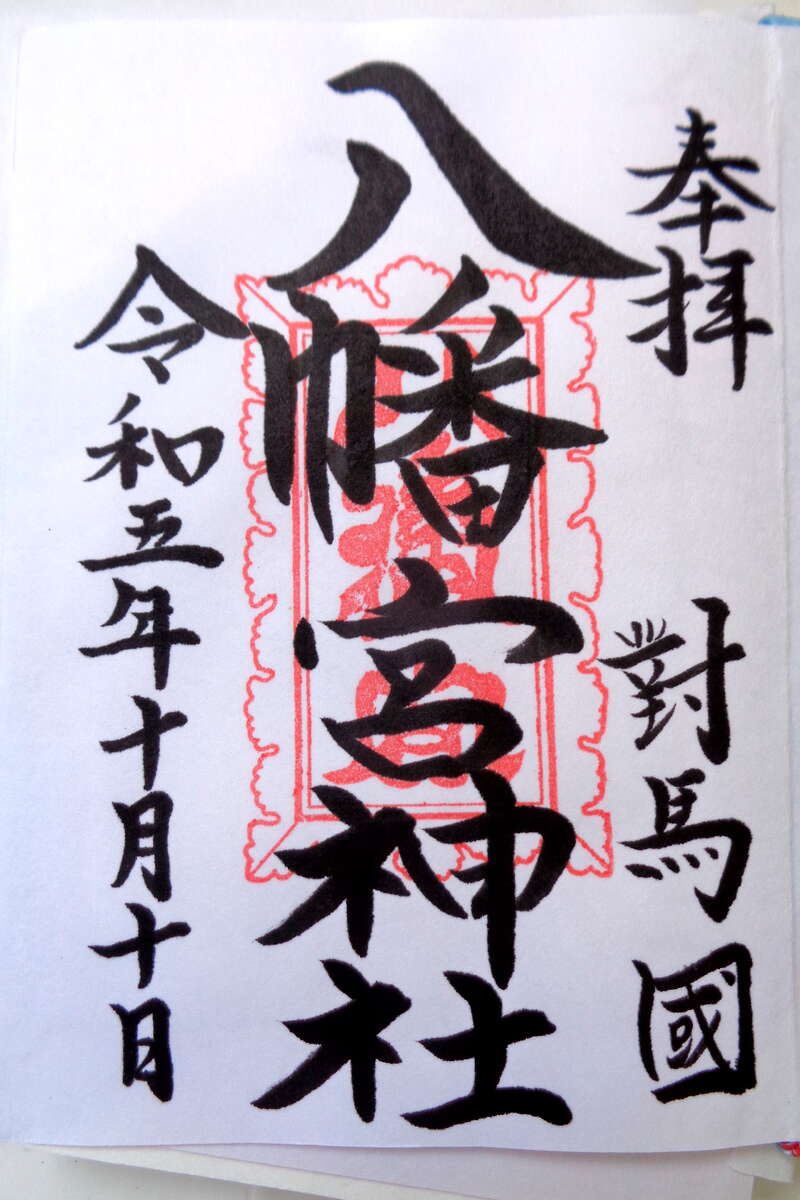 奉拝
對馬國
八幡宮神社
令和五年十月十日